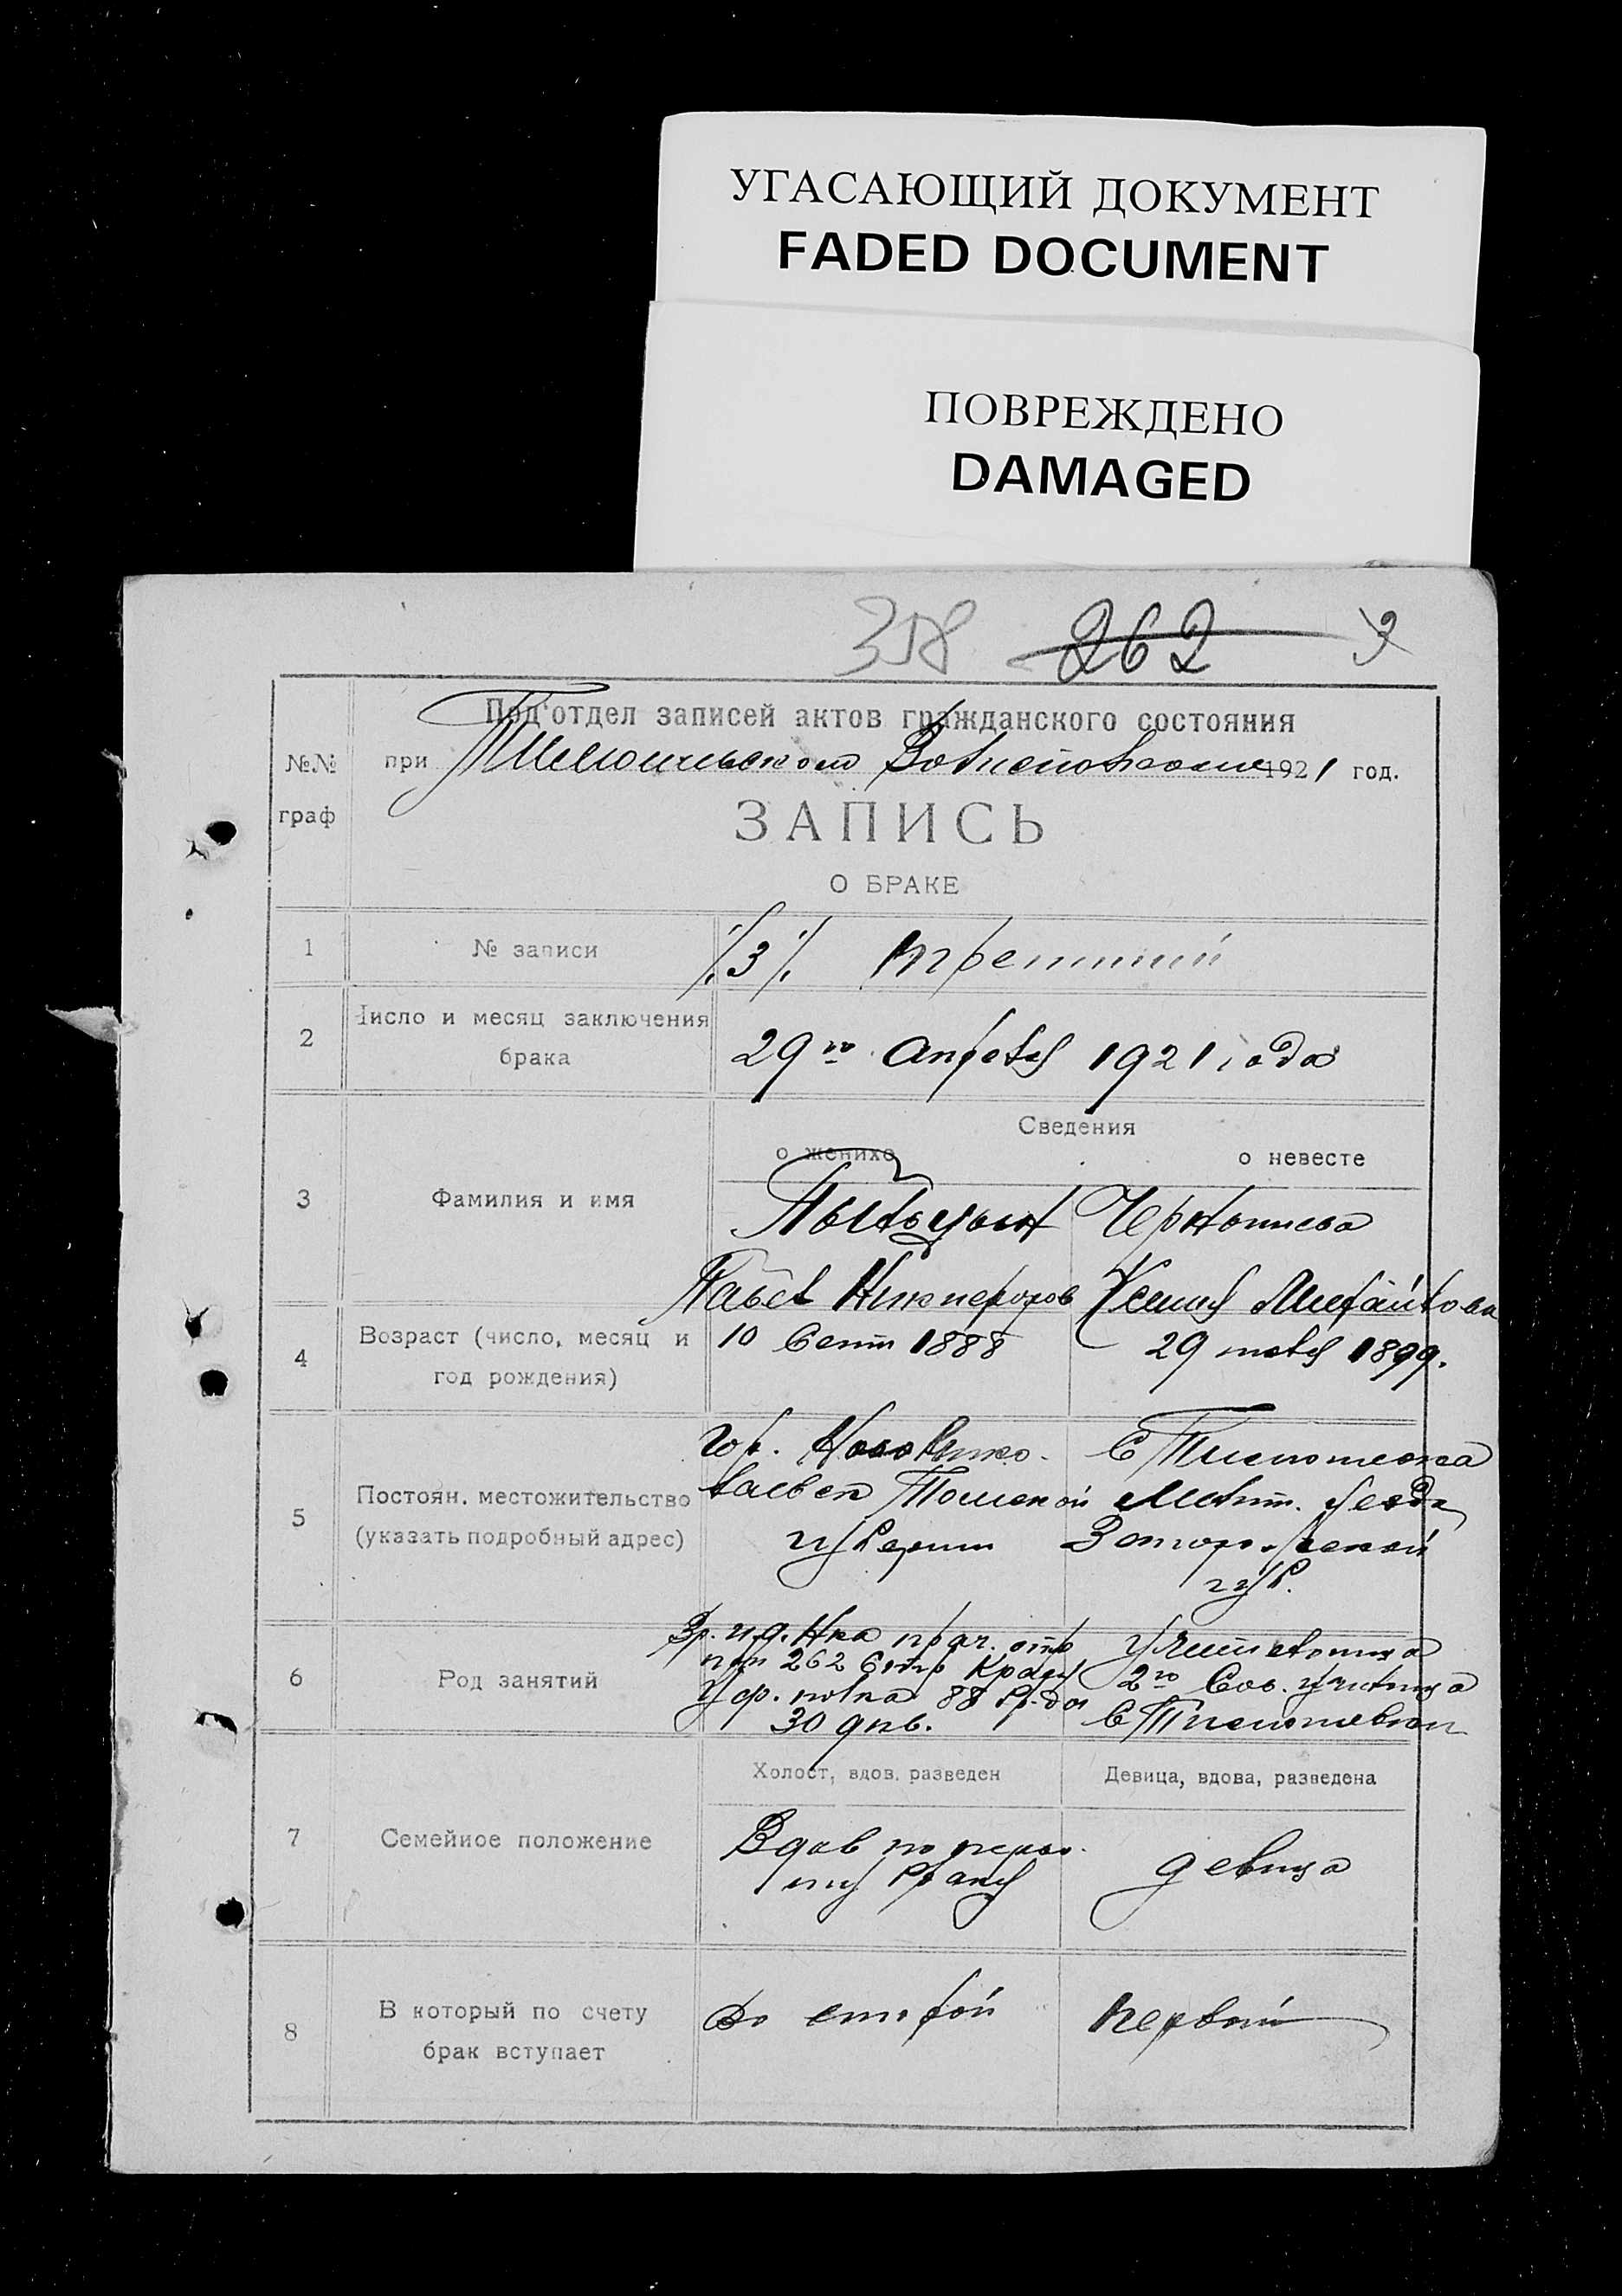 УГАСАЮЩИЙ ДОКУМЕНТ
FADED DOCUMENT
ПОВРЕЖДЕНО
DAMAGED
358 262 3
Под'отдел записей актов гражданского состояния
№№ при Волисполкоме 1921 год.
граф
ЗАПИСЬ
О БРАКЕ
1 № записи ./3/. третий
2 Число и месяц заключения
брака
29го апреля 1921 года
Сведения
о женихе о невесте
3 Фамилия и имя
Чернышева
Павел Никифоров Ксения Михайлова
4 Возраст (число, месяц и
год рождения)
10 Сент 1888 29 1899.
5 Постоян. местожительство
(указать подробный адрес)
гор. Новонико-
лаевск Томской уезда
губернии
губ.
6 Род занятий
Вр. и.д. Нка отр
при 262 полка 88 бр. до
30 див.
Учительница
2го Сов. училища
с
Холост, вдов, разведен Девица, вдова, разведена
7 Семейное положение
Вдов по перво-
му браку
девица
8 В который по счету
брак вступает
во второй первый